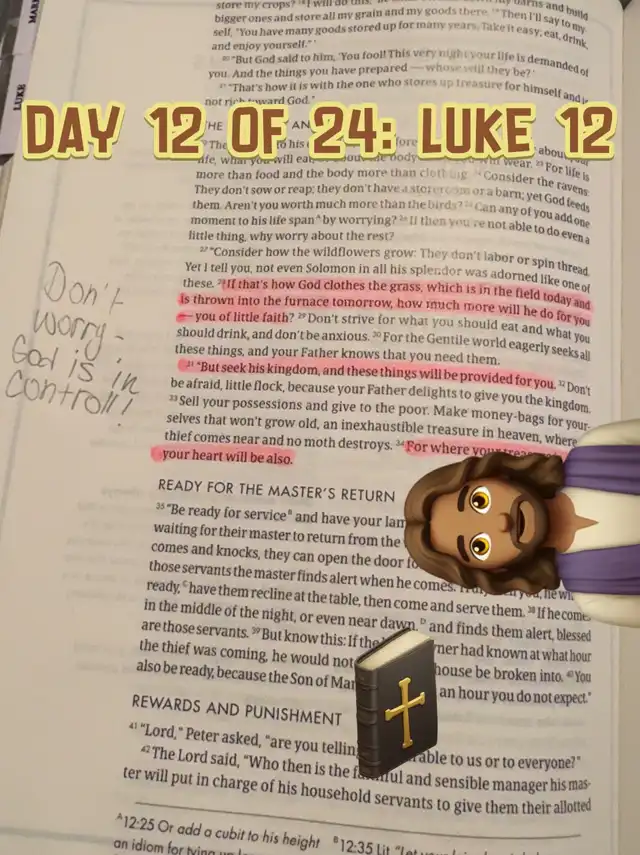 store my crops? ¹⁸ I will do this,' he barns and build
bigger ones and store all my grain and my goods there. ¹⁹ Then I'll say to my
self, "You have many goods stored up for many years. Take it easy; eat, drink,
and enjoy yourself."'
²⁰ "But God said to him, 'You fool! This very night your life is demanded of
you. And the things you have prepared — whose will they be?'
²¹ "That's how it is with the one who stores up treasure for himself and is
not rich toward God."
LUKE
DAY 12 OF 24: LUKE 12
THE AN
to his about your
life, what you will eat; body will wear. ²³ For life is
more than food and the body more than clothing. ²⁴ Consider the ravens:
They don't sow or reap; they don't have a storeroom or a barn; yet God feeds
them. Aren't you worth much more than the birds? ²⁵ Can any of you add one
moment to his life span ᴬ by worrying? ²⁶ If then you're not able to do even a
little thing, why worry about the rest?
²⁷ "Consider how the wildflowers grow: They don't labor or spin thread.
Yet I tell you, not even Solomon in all his splendor was adorned like one of
these. ²⁸ If that's how God clothes the grass, which is in the field today and
is thrown into the furnace tomorrow, how much more will he do for you
— you of little faith? ²⁹ Don't strive for what you should eat and what you
should drink, and don't be anxious. ³⁰ For the Gentile world eagerly seeks all
these things, and your Father knows that you need them.
³¹ "But seek his kingdom, and these things will be provided for you. ³² Don't
be afraid, little flock, because your Father delights to give you the kingdom.
³³ Sell your possessions and give to the poor. Make money-bags for your-
selves that won't grow old, an inexhaustible treasure in heaven, where
thief comes near and no moth destroys. ³⁴ For where your
your heart will be also.
Don't
worry-
God is in
control!
READY FOR THE MASTER'S RETURN
³⁵ "Be ready for service ᴮ and have your
waiting for their master to return from the
comes and knocks, they can open the door
those servants the master finds alert when he comes. you, he
ready, ᶜ have them recline at the table, then come and serve them. ³⁸ If he comes
in the middle of the night, or even near dawn, ᴰ and finds them alert, blessed
are those servants. ³⁹ But know this: If the had known at what hour
the thief was coming, he would not house be broken into. ⁴⁰ You
also be ready, because the Son of an hour you do not expect."
REWARDS AND PUNISHMENT
⁴¹ "Lord," Peter asked, "are you to us or to everyone?"
⁴² The Lord said, "Who then is the and sensible manager his mas-
ter will put in charge of his household servants to give them their allotted
ᴬ 12:25 Or add a cubit to his height ᴮ 12:35 Lit "Let
an idiom for